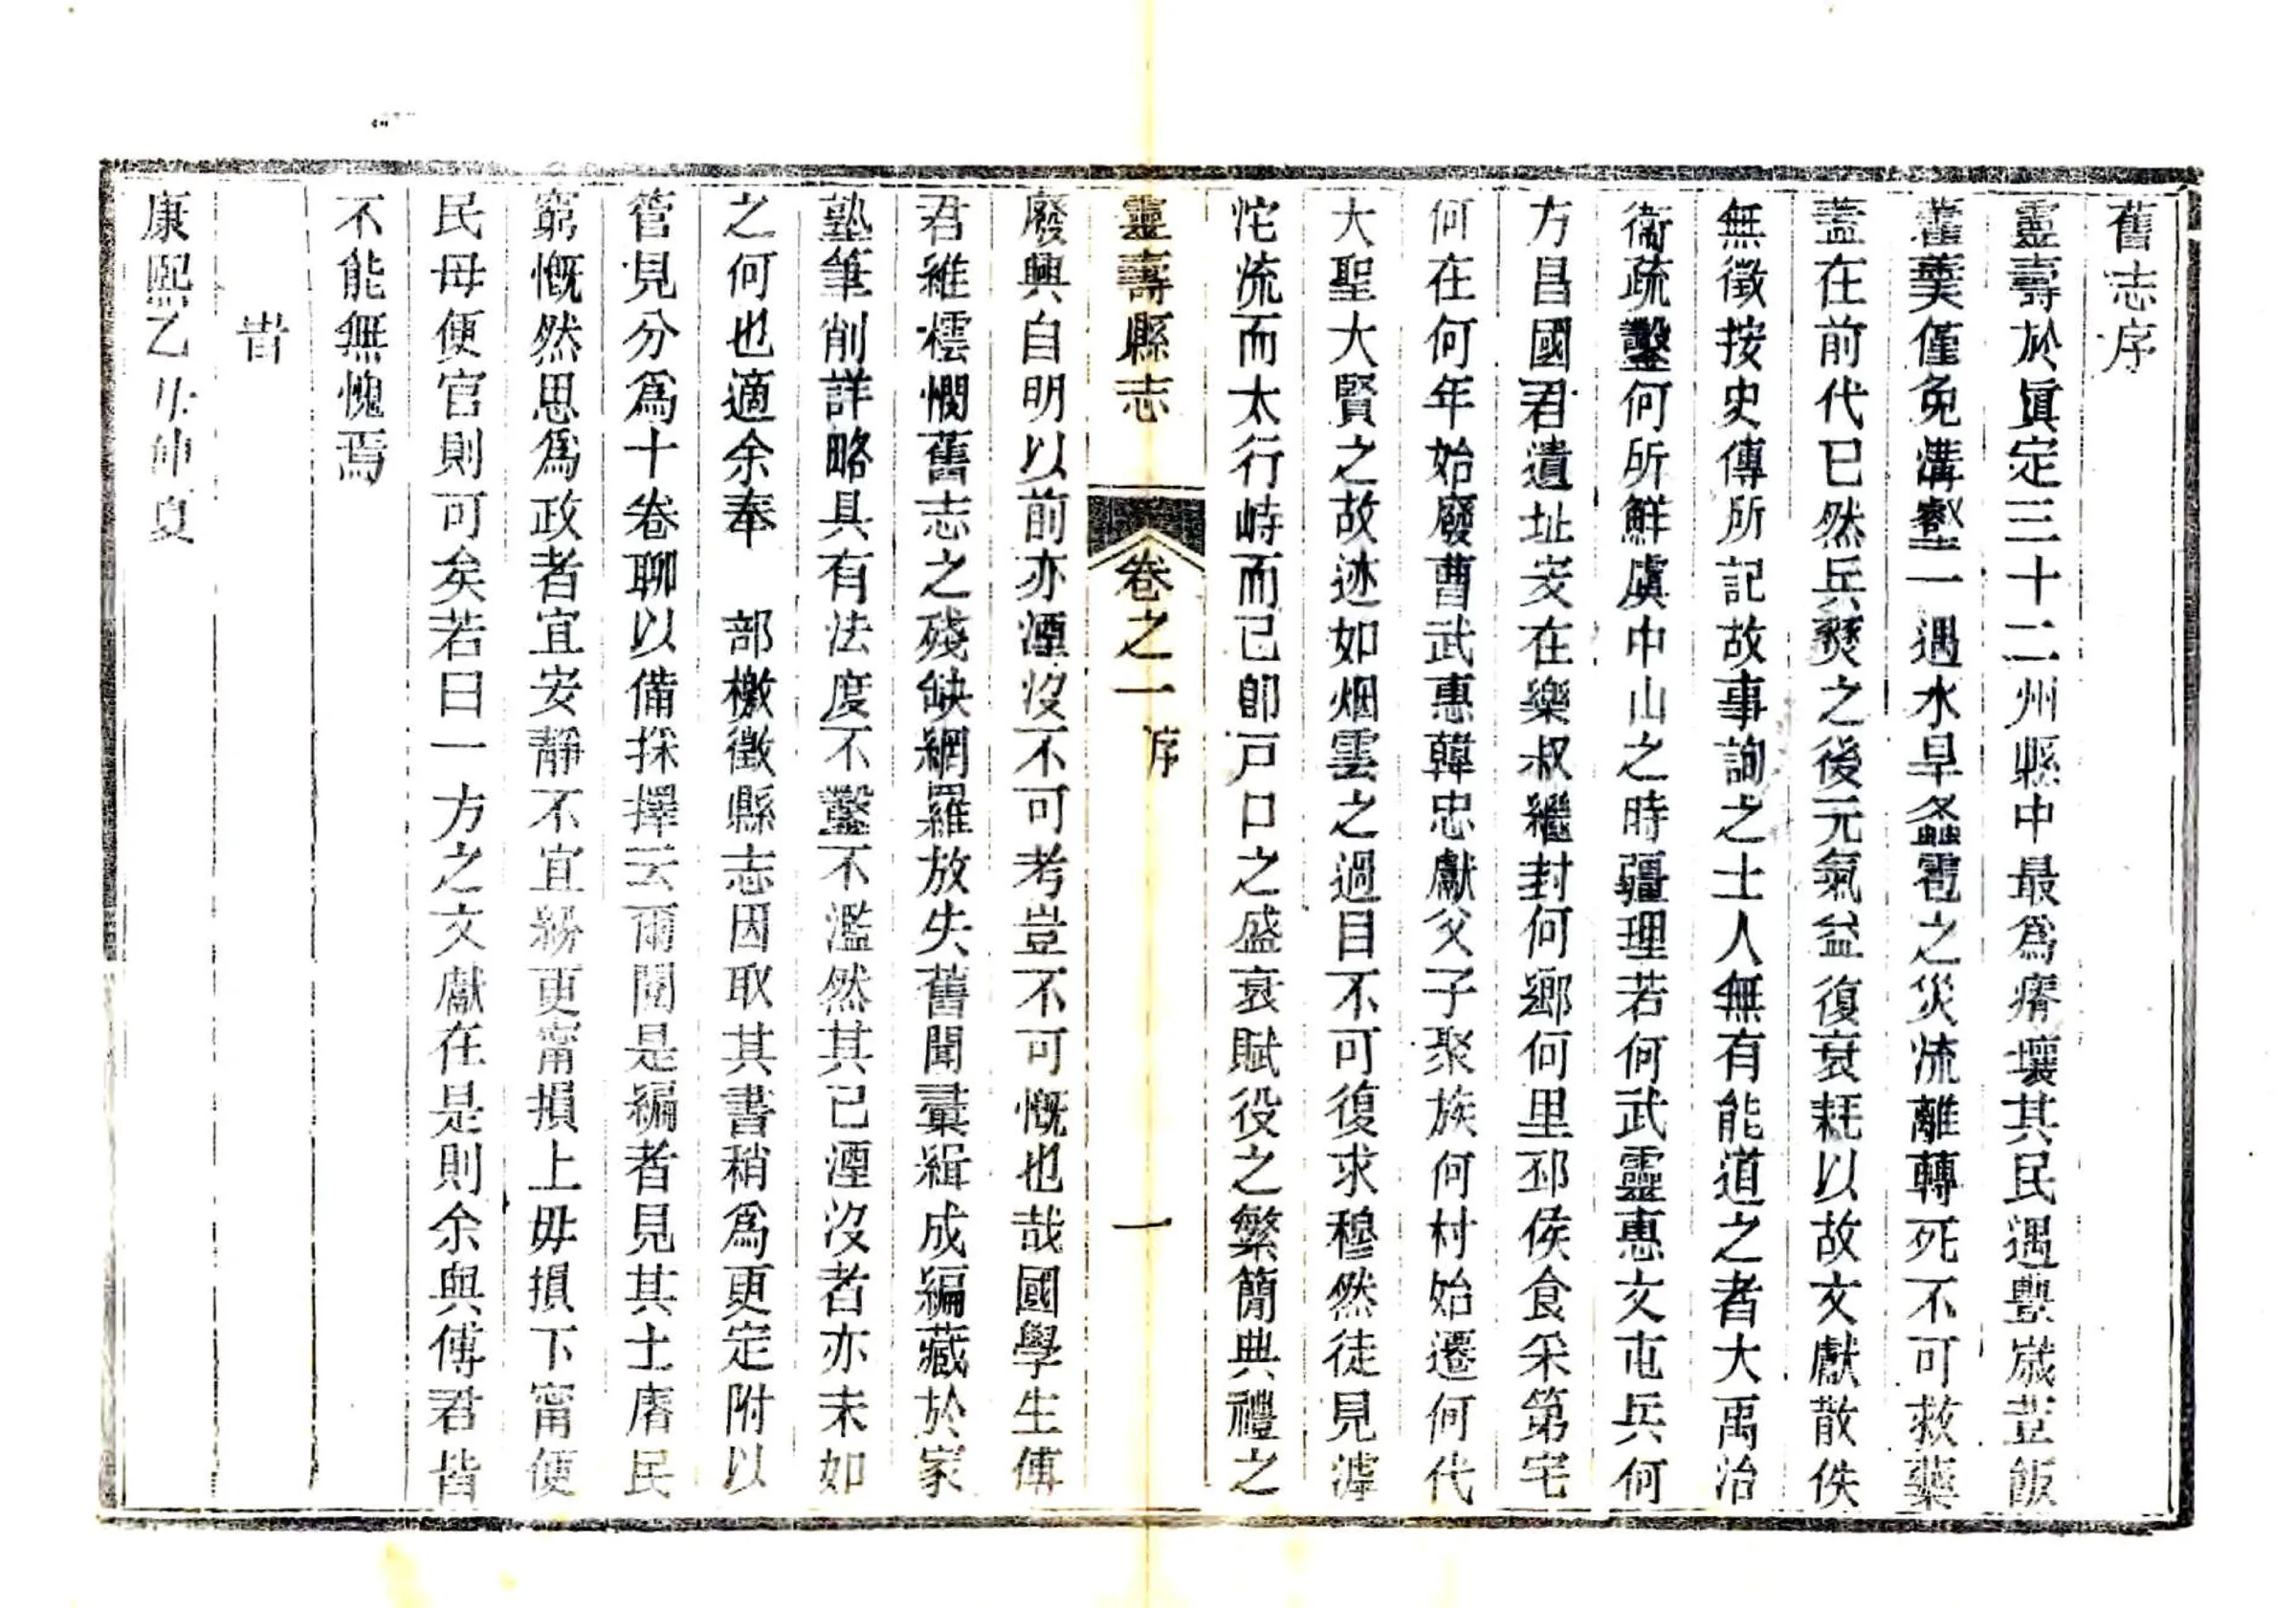 舊志序
靈壽於眞定三十二州縣中最爲瘠壤其民遇豐歲荳飯
藿羹僅免溝壑一遇水旱螽雹之災流離轉死不可救藥
蓋在前代已然兵燹之後元氣益復衰耗以故文獻散佚
無徵按史傳所記故事詢之士人無有能道之者大禹治
衞疏鑿何所鮮虞中山之時疆理若何武靈惠文屯兵何
方昌國君遺址安在樂叔繼封何鄉何里邳侯食采第宅
何在何年始廢曹武惠韓忠獻父子聚族何村始遷何代
大聖大賢之故迹如烟雲之過目不可復求穆然徒見滹
沱流而太行峙而已卽戸口之盛衰賦役之繁簡典禮之
靈壽縣志 卷之一 序 一
廢興自明以前亦湮沒不可考豈不可慨也哉國學生傅
君維橒憫舊志之殘缺網羅放失舊聞彙緝成編藏於家
塾筆削詳略具有法度不鑿不濫然其已湮沒者亦未如
之何也適余奉 部檄徵縣志因取其書稍爲更定附以
管見分爲十卷聊以備採擇云爾閱是編者見其土瘠民
窮慨然思爲政者宜安靜不宜紛更甯損上毋損下甯便
民毋便官則可矣若曰一方之文獻在是則余與傅君皆
不能無愧焉
旹
康熙乙丑仲夏